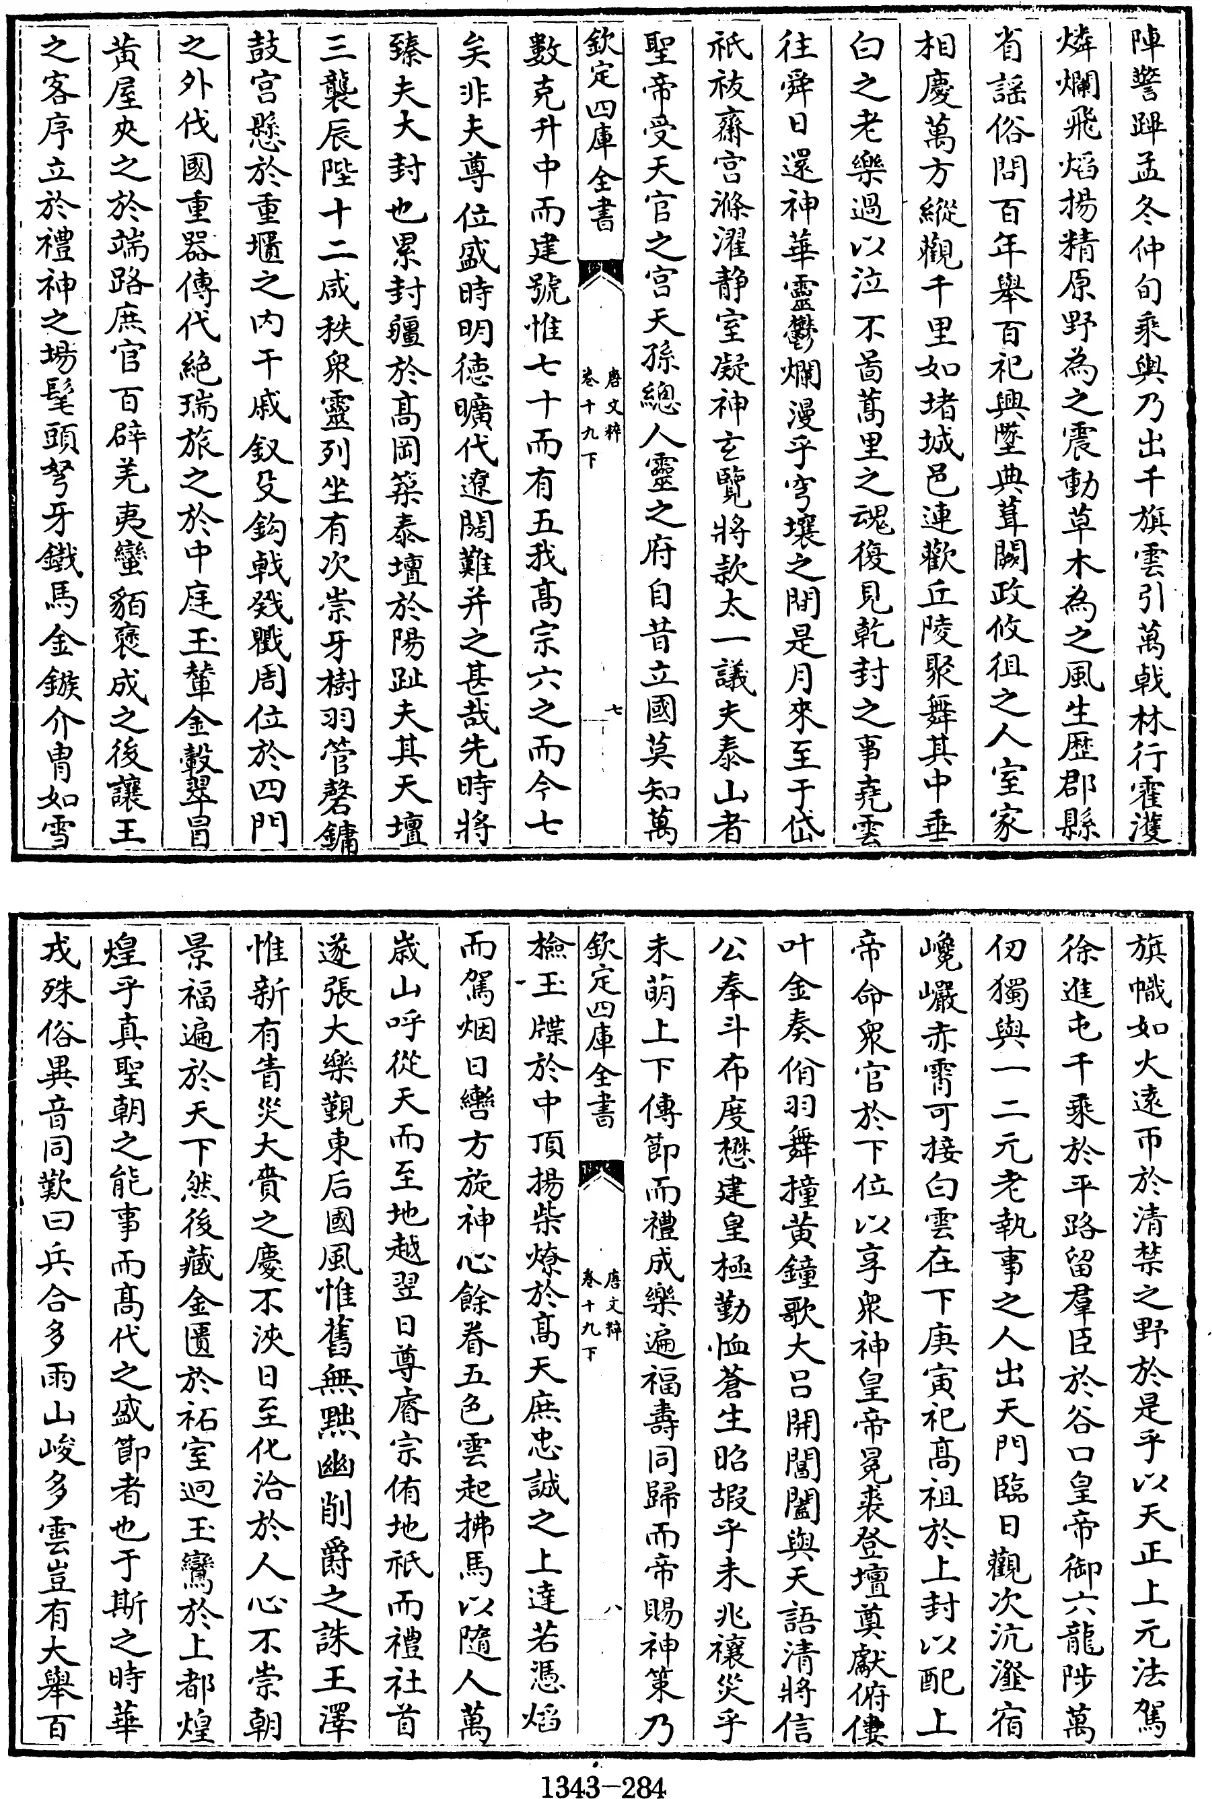 陣警蹕孟冬仲旬乘輿乃出千旗雲引萬戟林行霍濩
燐爛飛㷔揚精原野為之震動草木為之風生歴郡縣
省謡俗問百年舉百祀興墜典葺闕政攸徂之人室家
相慶萬方縱觀千里如堵城邑連歡丘陵聚舞其中垂
白之老樂過以泣不啚蒿里之魂復見乾封之事堯雲
往舜日還神華靈鬱爛漫乎穹壤之間是月來至于岱
祇祓齋宫滌濯静室凝神玄覽將款太一議夫泰山者
聖帝受天官之宫天孫總人靈之府自昔立國莫知萬
欽定四庫全書
唐文粹
卷十九下
七
數克升中而建號惟七十而有五我髙宗六之而今七
矣非夫尊位盛時明徳曠代遼闊難并之甚哉先時將
臻夫大封也累封疆於髙岡築泰壇於陽趾夫其天壇
三襲辰陛十二咸秩衆靈列坐有次崇牙樹羽管磬鏞
鼓宫懸於重壝之内干戚釵殳鈎戟戣戵周位於四門
之外伐國重器傳代絶瑞旅之於中庭玉輦金轂翠冒
黃屋夾之於端路庶官百辟羌夷蠻貊褒成之後讓王
之客序立於禮神之場髦頭弩牙鐵馬金鏃介胄如雪
旗幟如火逺帀於清禁之野於是乎以天正上元法駕
徐進屯千乘於平路留羣臣於谷口皇帝御六龍陟萬
仞獨與一二元老執事之人出天門臨日觀次沆瀣宿
巉巖赤霄可接白雲在下庚寅祀髙祖於上封以配上
帝命衆官於下位以享衆神皇帝冕裘登壇奠獻俯僂
叶金奏佾羽舞撞黄鐘歌大吕開閶闔與天語清將信
公奉斗布度懋建皇極勤恤蒼生昭嘏乎未兆禳災乎
未萌上下傳節而禮成樂遍福壽同歸而帝賜神策乃
欽定四庫全書
唐文粹
卷十九下
八
檢玉牒於中頂揚柴燎於髙天庶忠誠之上達若憑㷔
而駕烟日轡方旋神心餘眷五色雲起拂馬以隨人萬
歳山呼從天而至地越翌日尊睿宗侑地祇而禮社首
遂張大樂覲東后國風惟舊無黜幽削爵之誅王澤
惟新有眚災大賚之慶不浹日至化洽於人心不崇朝
景福遍於天下然後藏金匱於祏室迴玉鸞於上都煌
煌乎真聖朝之能事而髙代之盛節者也于斯之時華
戎殊俗異音同歎曰兵合多雨山峻多雲豈有大舉百
1343-284